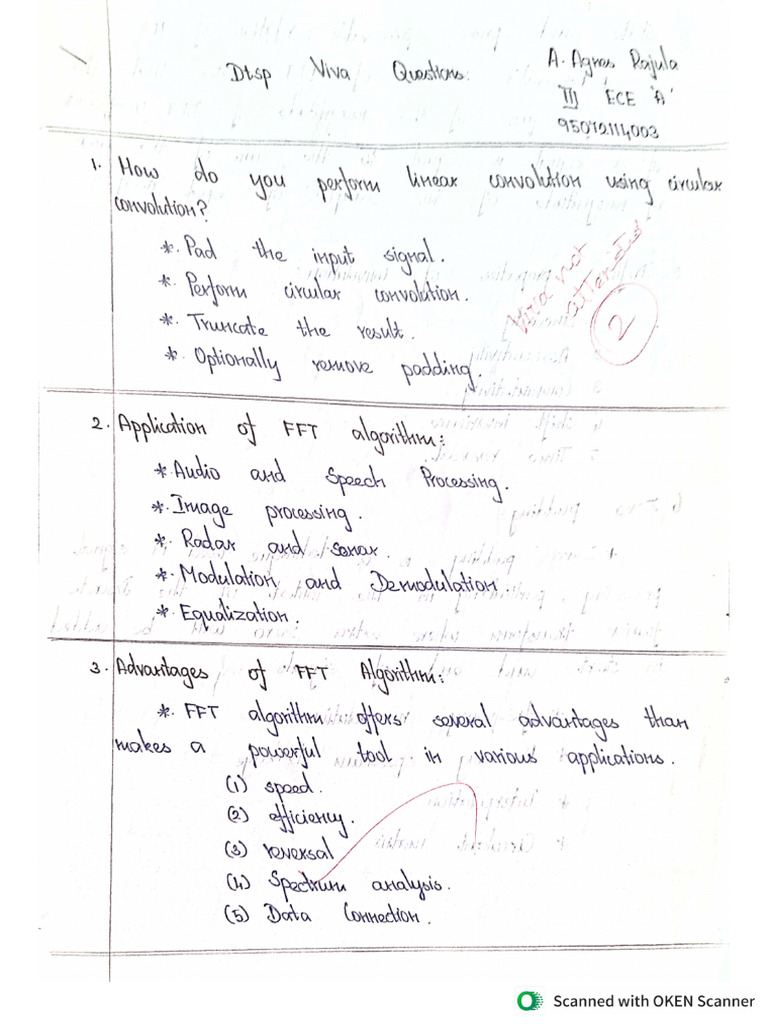 Dtsp Viva Questions:
A. Agnes Rajula
III ECE 'A'
950721114003
1. How do you perform linear convolution using circular
convolution?
*. Pad the input signal.
*. Perform circular convolution.
*. Truncate the result.
*. Optionally remove padding.
Viva not
2
2. Application of FFT algorithm:
*. Audio and Speech Processing.
*. Image processing.
*. Radar and sonar.
*. Modulation and Demodulation
*. Equalization.
3. Advantages of FFT Algorithm:
*. FFT algorithm offers several advantages than
makes a powerful tool in various applications.
(1) speed.
(2) efficiency.
(3) reversal
(4) Spectrum analysis.
(5) Data Connection.
Scanned with OKEN Scanner